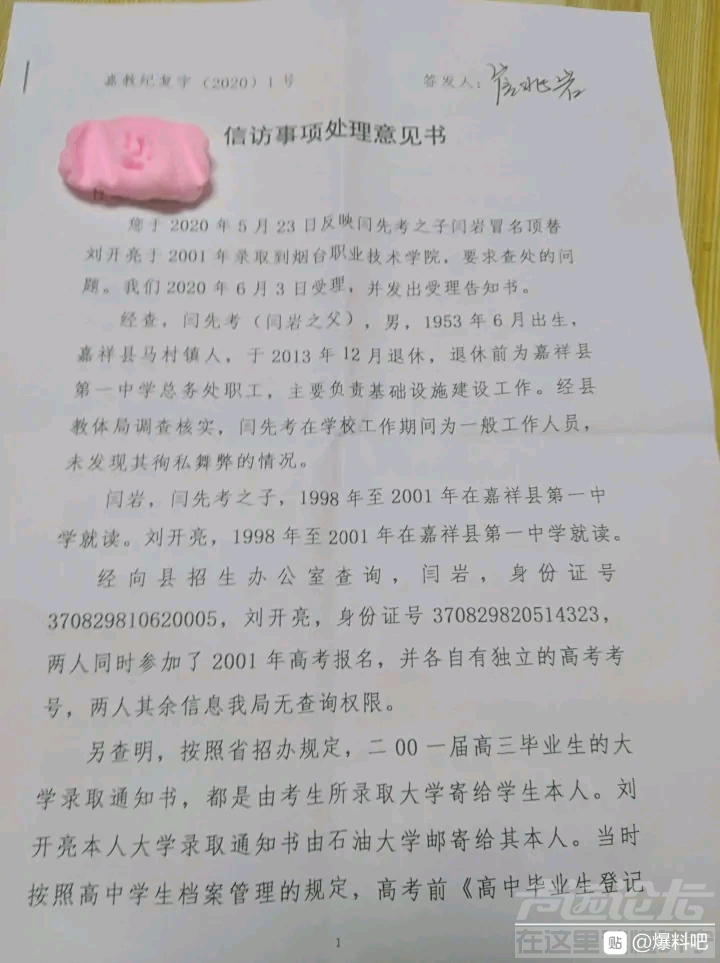 嘉教纪复字（2020）1号
签发人：
信访事项处理意见书
您于 2020 年 5 月 23 日反映闫先考之子闫岩冒名顶替
刘开亮于 2001 年录取到烟台职业技术学院，要求查处的问
题。我们 2020 年 6 月 3 日受理，并发出受理告知书。
经查，闫先考（闫岩之父），男，1953 年 6 月出生，
嘉祥县马村镇人，于 2013 年 12 月退休，退休前为嘉祥县
第一中学总务处职工，主要负责基础设施建设工作。经县
教体局调查核实，闫先考在学校工作期间为一般工作人员，
未发现其徇私舞弊的情况。
闫岩，闫先考之子，1998 年至 2001 年在嘉祥县第一中
学就读。刘开亮，1998 年至 2001 年在嘉祥县第一中学就读。
经向县招生办公室查询，闫岩，身份证号
370829810620005，刘开亮，身份证号 370829820514323，
两人同时参加了 2001 年高考报名，并各自有独立的高考考
号，两人其余信息我局无查询权限。
另查明，按照省招办规定，二 00 一届高三毕业生的大
学录取通知书，都是由考生所录取大学寄给学生本人。刘
开亮本人大学录取通知书由石油大学邮寄给其本人。当时
按照高中学生档案管理的规定，高考前《高中毕业生登记
1
论坛
在这里
贴 @爆料吧